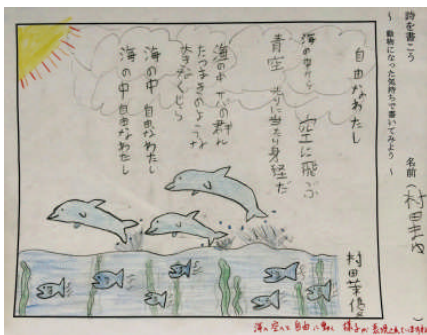 詩を書こう
~ 動物になった気持ちで書いてみよう ~
名前(村田まゆ)
自由なわたし
海の中から 空に飛ぶ
青空 光に当たり身軽だ
海の中 サバの群れ
たつまきのような
大きなくじら
海の中 自由なわたし
海の中 自由なわたし
村田茉優
海や空へと自由に動く様子が表現されていますね